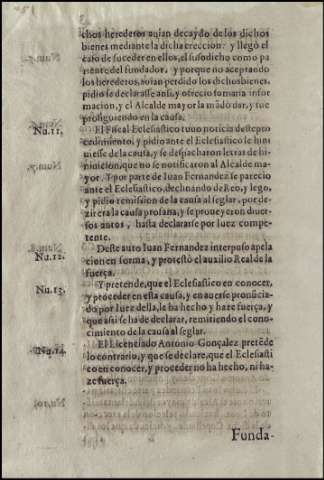 chos herederos auian decaydo de los dichos
bienes mediante la dicha ereccion: y llegò el
caso de suceder en ellos, el susodicho como pa
riente del fundador, y porque no aceptando
los herederos, auian perdido los dichos bienes,
pidio se declarasse ansi, y ofrecio sumaria infor
macion, y el Alcalde mayor la mãdò dar, y fue
prosiguiendo en la causa.
Nu.11. El Fiscal Eclesiastico tuuo noticia deste pro
cedimiento, y pidio ante el Eclesiastico se hini
uiesse de la causa, y se despacharon letras de hi-
nibicion, que no se notificaron al Alcalde ma-
yor. Y por parte de Iuan Fernandez se parecio
ante el Eclesiastico, declinando de Reo, y lego,
y pidio remission de la causa al seglar, por de-
zir era la causa profana, y se proueyeron diuer-
sos autos, hasta declararse por Iuez compe-
tente.
Nu.12. Deste auto Iuan Fernandez interpuso apela
cion en forma, y protestò el auxilio Real de la
fuerça.
Nu.13. Y pretende, que el Eclesiastico en conocer,
y proceder en esta causa, y en auerse pronũcia-
do por Iuez della, le ha hecho y haze fuerça, y
que assi se ha de declarar, remitiendo el cono-
cimiento de la causa al seglar.
Nu.14. El Licenciado Antonio Gonçalez pretẽde
lo contrario, y que se declare, que el Eclesiasti
co en conocer, y proceder no ha hecho, ni ha-
ze fuerça.
Funda-